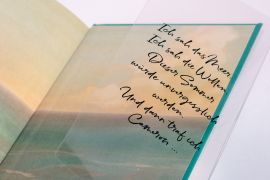 Ich sah das Meer.
Ich sah die Wellen.
Dieser Sommer
würde unvergesslich
werden.
Und dann traf ich
Cameron ...